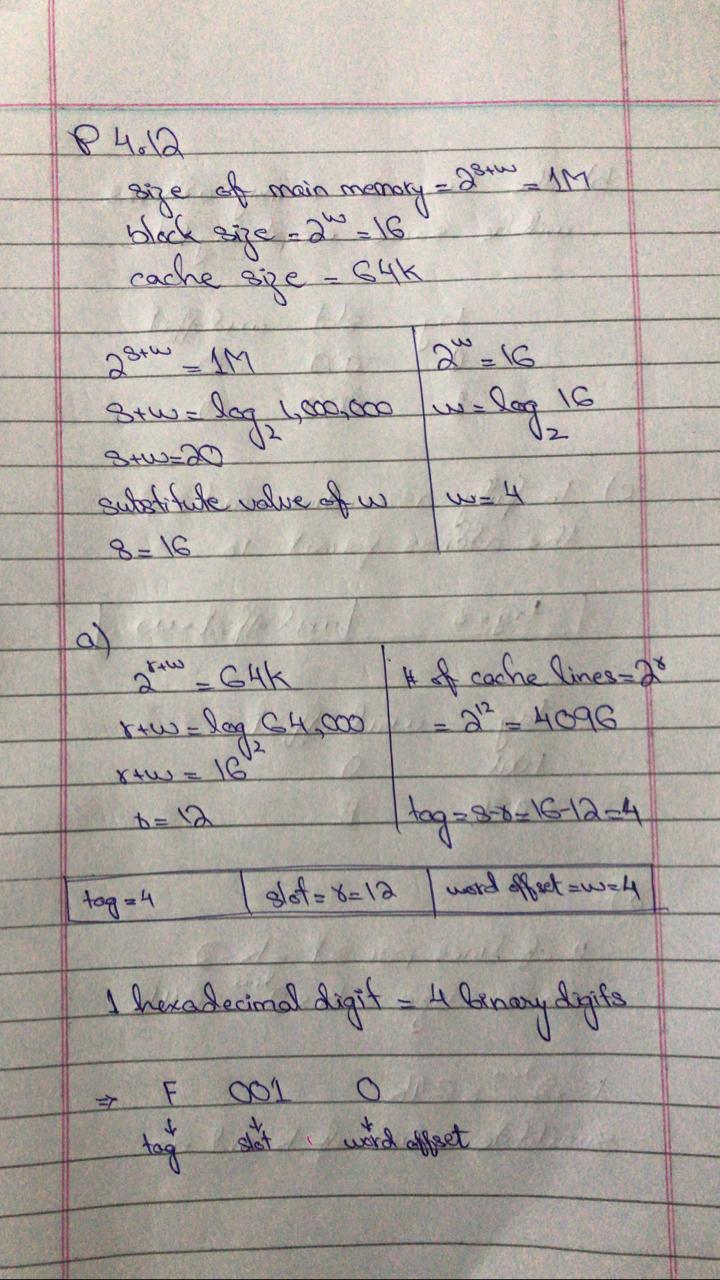 P 4.12
size of main memory = 2^(s+w) = 1M
block size = 2^w = 16
cache size = 64K
2^(s+w) = 1M
s+w = log₂ 1,000,000
s+w=20
substitute value of w
s = 16
2^w = 16
w = log₂ 16
w = 4
a)
2^(r+w) = 64K
r+w = log₂ 64,000
r+w = 16
r = 12
# of cache lines = 2^r
= 2^12 = 4096
tag = s-r = 16-12 = 4
tag = 4 slot = r = 12 word offset = w = 4
1 hexadecimal digit = 4 binary digits
⇒ F 001 0
↓ ↓ ↓
tag slot word offset